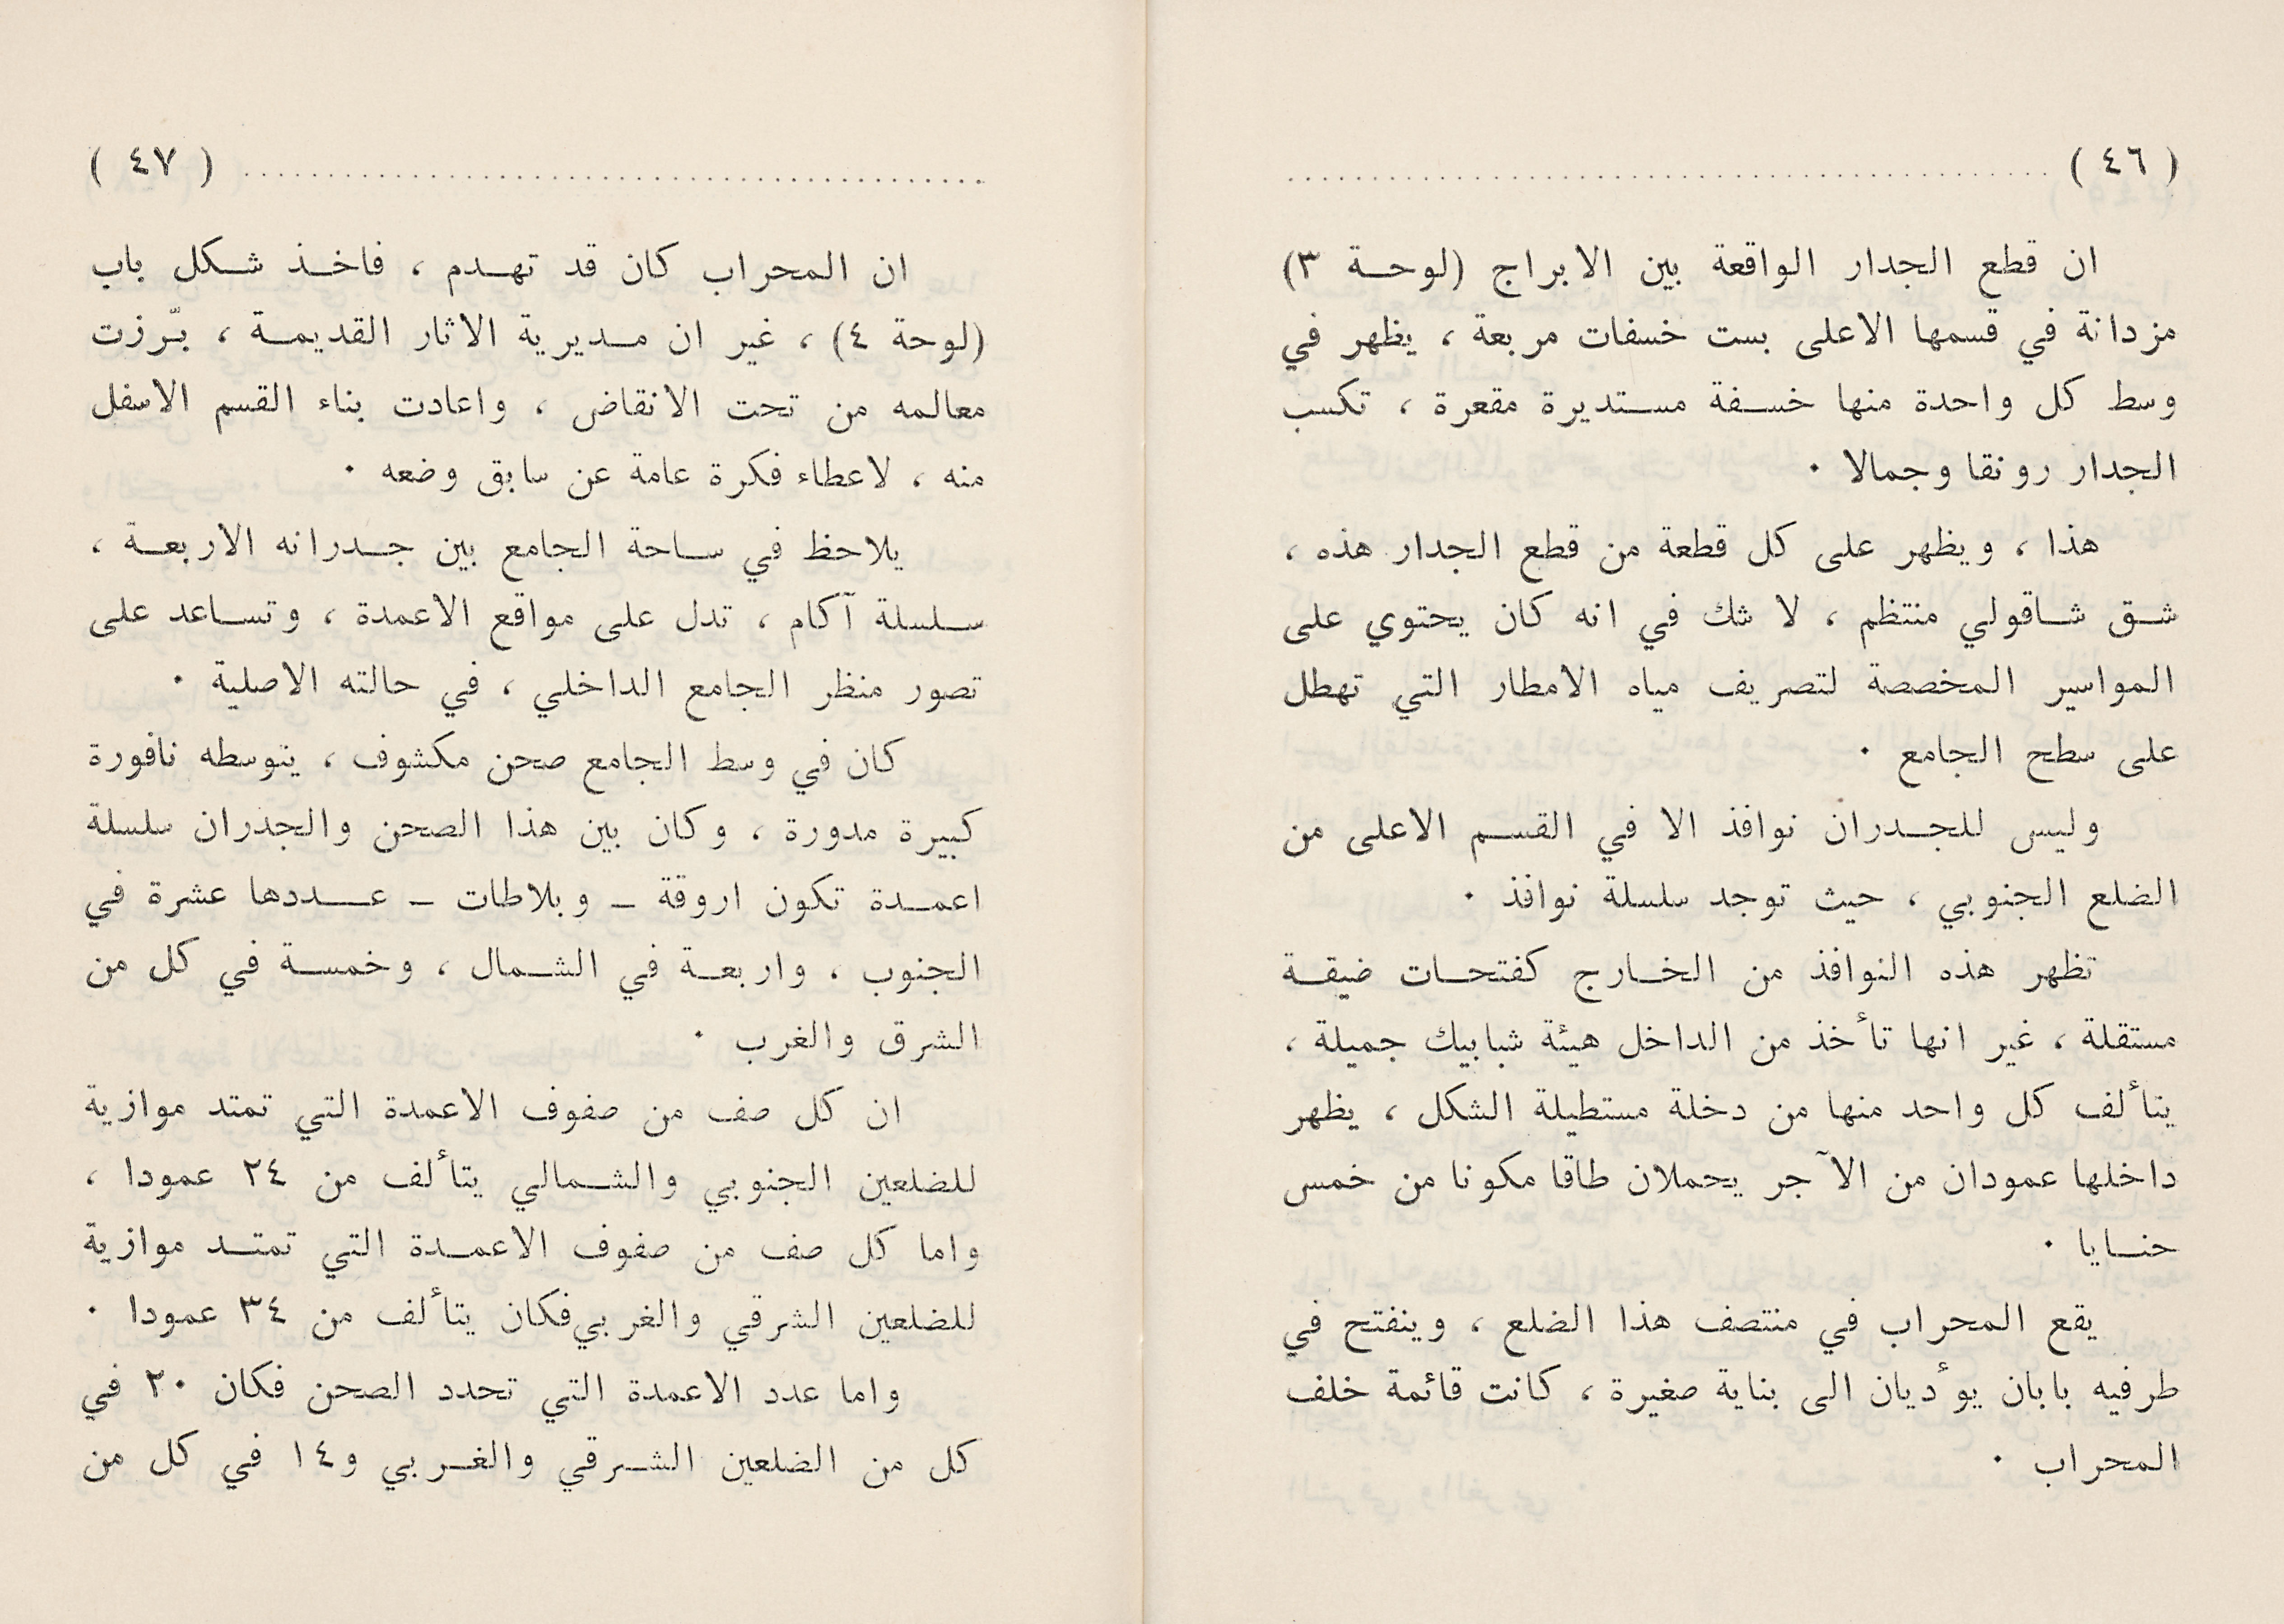 ( ٤٦ )
ان قطع الجدار الواقعة بين الابراج (لوحة ٣)
مزدانة في قسمها الاعلى بست خسفات مربعة ، يظهر في
وسط كل واحدة منها خسفة مستديرة مقعرة ، تكسب
الجدار رونقا وجمالا ٠
هذا ، ويظهر على كل قطعة من قطع الجدار هذه ،
شق شاقولي منتظم ، لا شك في انه كان يحتوي على
المواسير المخصصة لتصريف مياه الامطار التي تهطل
على سطح الجامع ٠
وليس للجدران نوافذ الا في القسم الاعلى من
الضلع الجنوبي ، حيث توجد سلسلة نوافذ ٠
تظهر هذه النوافذ من الخارج كفتحات ضيقة
مستقلة ، غير انها تأخذ من الداخل هيئة شبابيك جميلة ،
يتألف كل واحد منها من دخلة مستطيلة الشكل ، يظهر
داخلها عمودان من الآجر يحملان طاقا مكونا من خمس
حنايا ٠
يقع المحراب في منتصف هذا الضلع ، وينفتح في
طرفيه بابان يوأديان الى بناية صغيرة ، كانت قائمة خلف
المحراب ٠
( ٤٧ )
ان المحراب كان قد تهدم ، فاخذ شكل باب
(لوحة ٤) ، غير ان مديرية الاثار القديمة ، برّزت
معالمه من تحت الانقاض ، واعادت بناء القسم الاسفل
منه ، لاعطاء فكرة عامة عن سابق وضعه ٠
يلاحظ في ساحة الجامع بين جدرانه الاربعة ،
سلسلة آكام ، تدل على مواقع الاعمدة ، وتساعد على
تصور منظر الجامع الداخلي ، في حالته الاصلية ٠
كان في وسط الجامع صحن مكشوف ، يتوسطه نافورة
كبيرة مدورة ، وكان بين هذا الصحن والجدران سلسلة
اعمدة تكون اروقة ـ وبلاطات ـ عددها عشرة في
الجنوب ، واربعة في الشمال ، وخمسة في كل من
الشرق والغرب ٠
ان كل صف من صفوف الاعمدة التي تمتد موازية
للضلعين الجنوبي والشمالي يتألف من ٢٤ عمودا ،
واما كل صف من صفوف الاعمدة التي تمتد موازية
للضلعين الشرقي والغربي فكان يتألف من ٣٤ عمودا ٠
واما عدد الاعمدة التي تحدد الصحن فكان ٢٠ في
كل من الضلعين الشرقي والغربي و١٤ في كل من